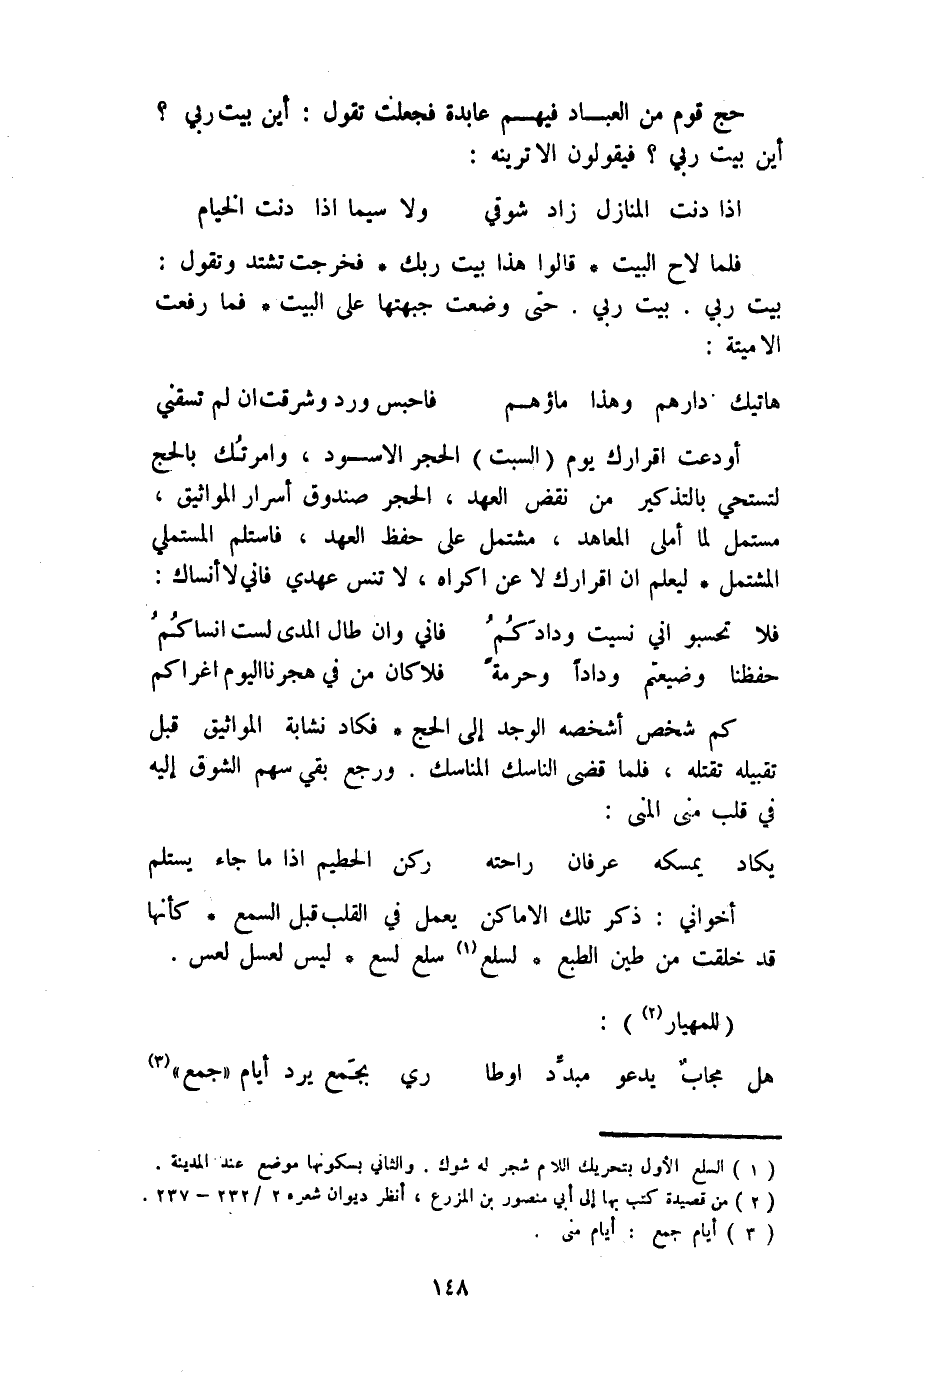 حج قوم من العبـــاد فيهـــم عابدة فجعلت تقول : أين بيت ربي ؟
أين بيت ربي ؟ فيقولون الا ترينه :
اذا دنت المنازل زاد شوقي ولا سيما اذا دنت الخيام
فلما لاح البيت * قالوا هذا بيت ربك * فخرجت تشتد وتقول :
بيت ربي . بيت ربي . حتى وضعت جبهتها على البيت * فما رفعت
الا ميتة :
هاتيك دارهم وهذا ماؤهـــم فاحبس ورد وشرقت ان لم تسقني
أودعت اقرارك يوم ( السبت ) الحجر الاســـود ، وامرتُك بالحج
لتستحي بالتذكير من نقض العهد ، الحجر صندوق أسرار المواثيق ،
مستمل لما أملى المعاهد ، مشتمل على حفظ العهد ، فاستلم المستملي
المشتمل * ليعلم ان اقرارك لا عن اكراه ، لا تنس عهدي فاني لا أنساك :
فلا تحسبو اني نسيت ودادَكُمُ فاني وان طال المدى لست انساكُمُ
حفظنا وضيعتم وداداً وحرمةً فلا كان من في هجرنا اليوم اغراكم
كم شخص أشخصه الوجد إلى الحج * فكاد نشابة المواثيق قبل
تقبيله تقتله ، فلما قضى الناسك المناسك . ورجع بقي سهم الشوق إليه
في قلب منى المنى :
يكاد يمسكه عرفان راحته ركن الحطيم اذا ما جاء يستلم
أخواني : ذكر تلك الاماكن يعمل في القلب قبل السمع * كأنها
قد خلقت من طين الطبع * لسلع (١) سلع لسع * ليس لعسل لعس .
( للمهيار (٢) ) :
هل مجابٌ يدعو مبدَّد اوطا ري بجَمع يرد أيام «جمع» (٣)
( ١ ) السلع الأول بتحريك اللام شجر له شوك . والثاني بسكونها موضع عند المدينة .
( ٢ ) من قصيدة كتب بها إلى أبي منصور بن المزرع ، أنظر ديوان شعره ٢ /٢٣٢ – ٢٣٧ .
( ٣ ) أيام جمع : أيام منى .
١٤٨